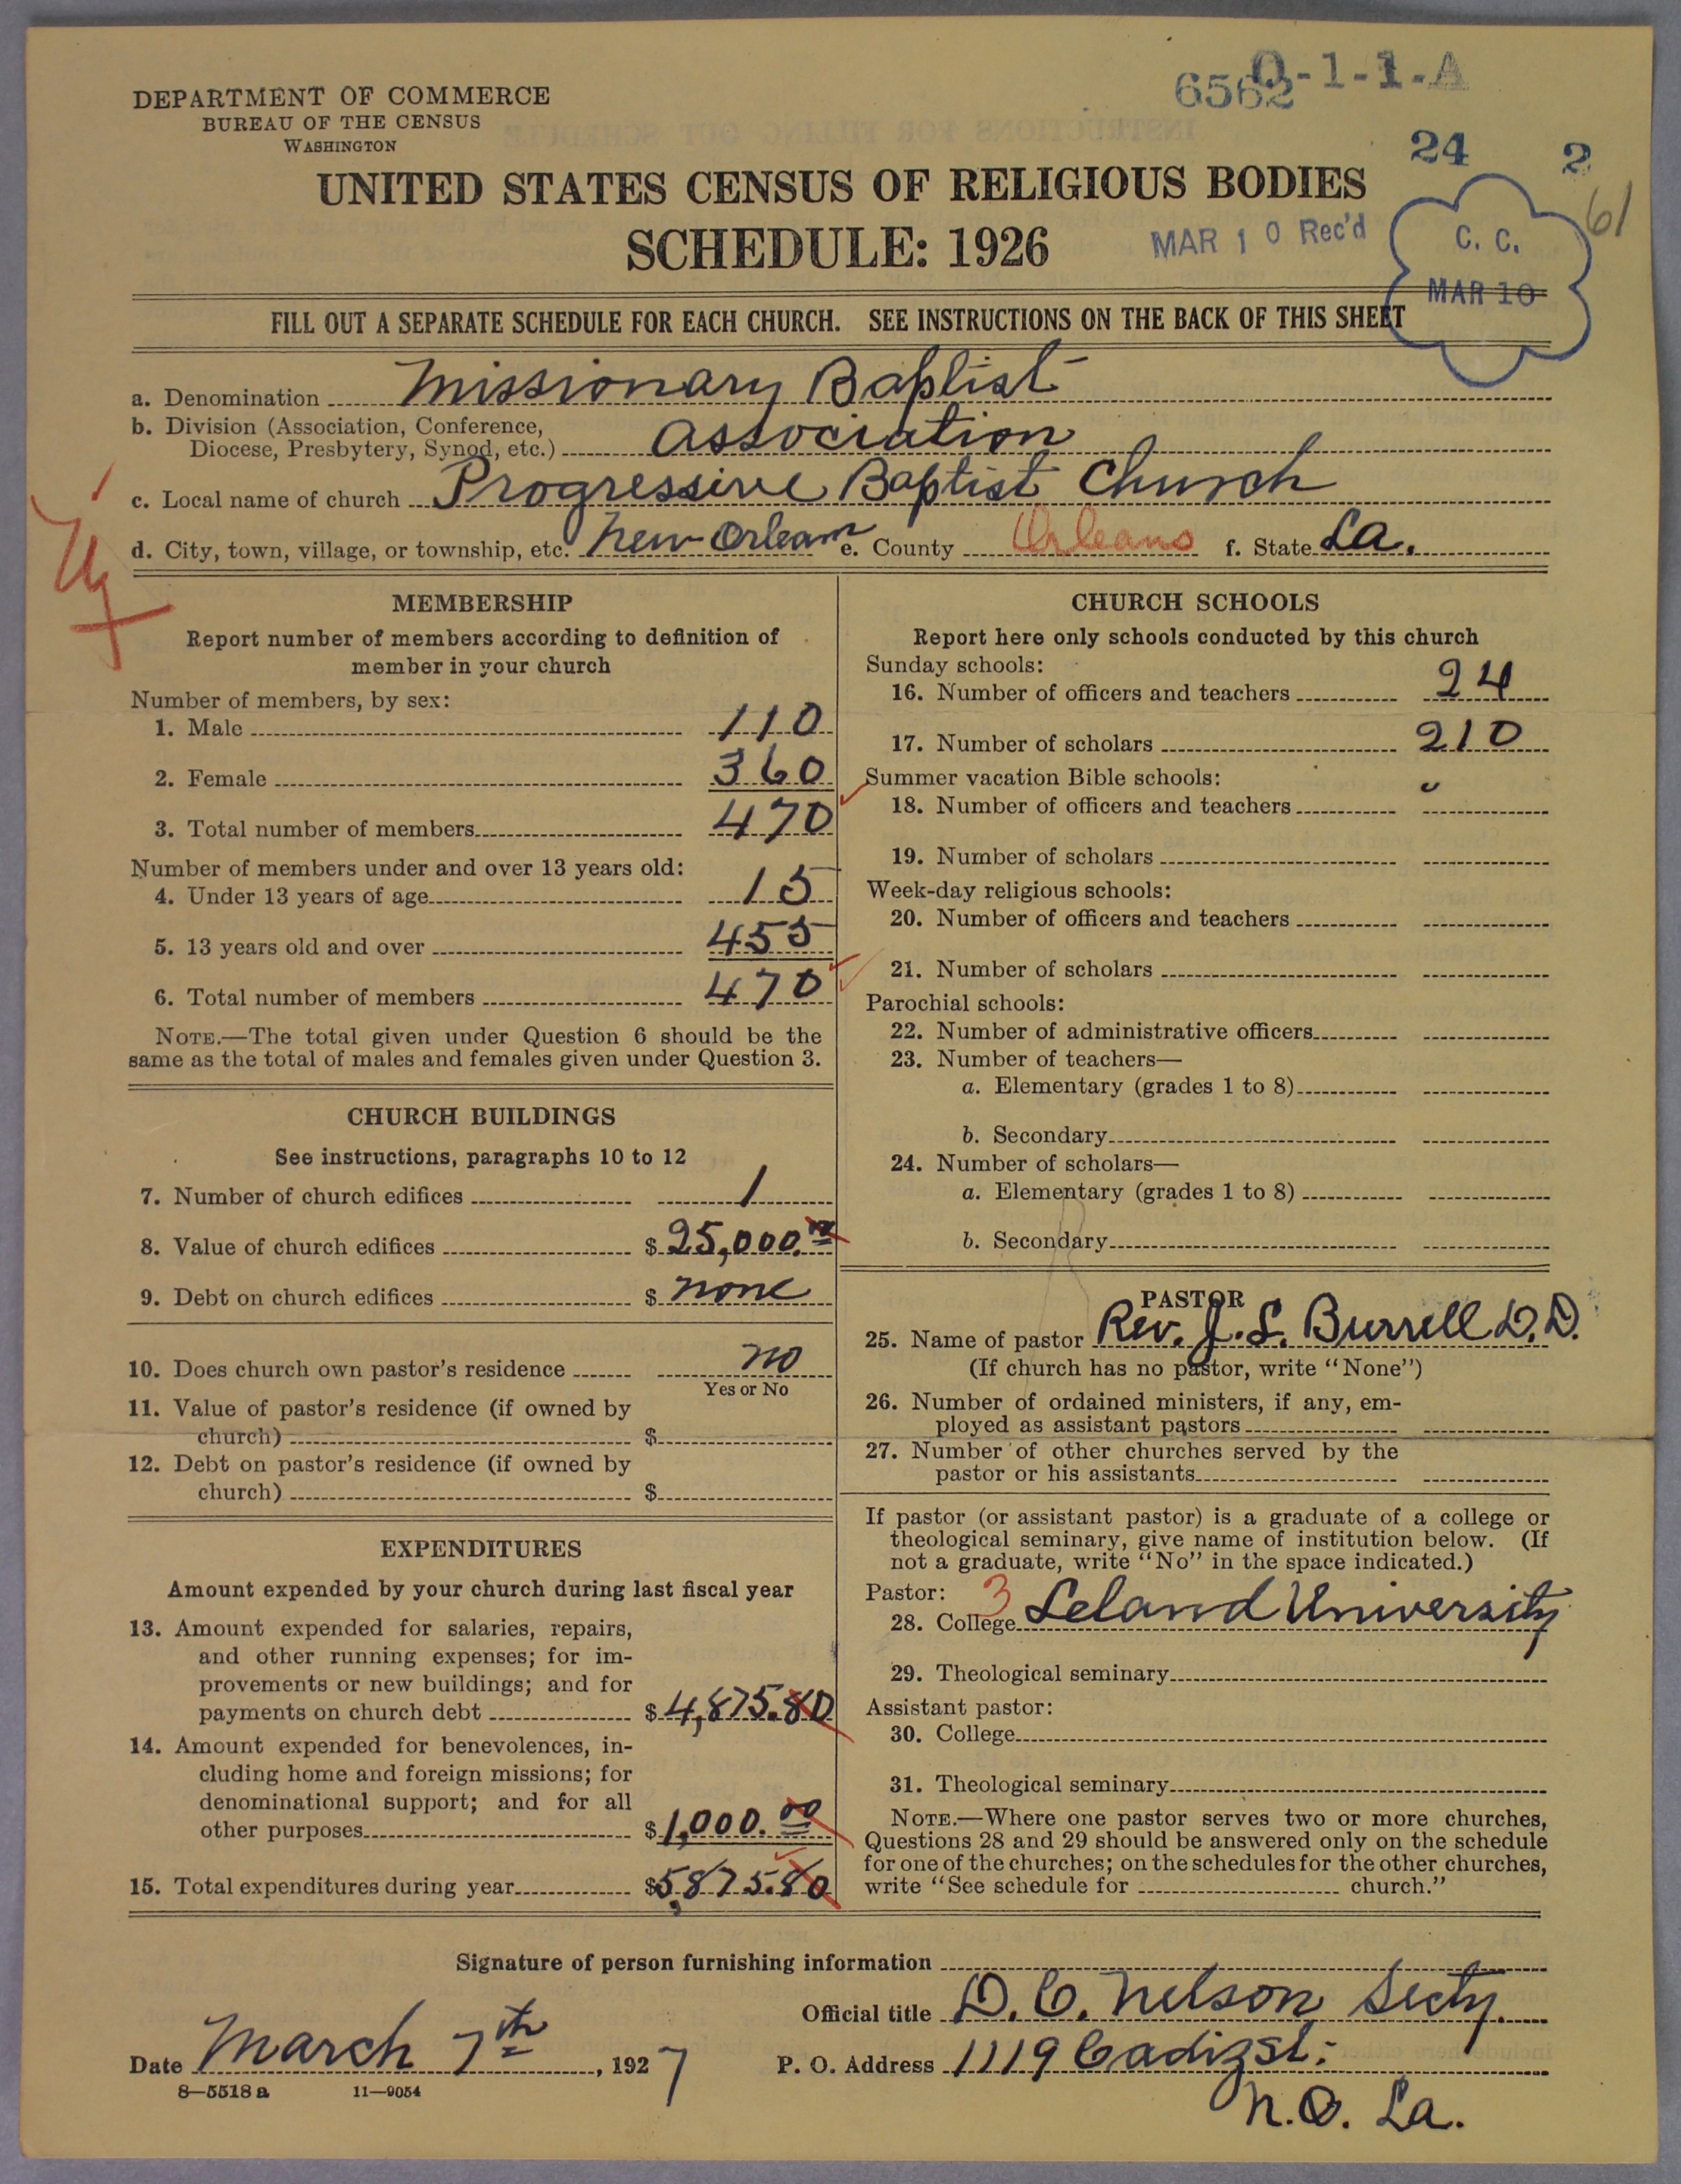 6562 0-1-1-A
DEPARTMENT OF COMMERCE
BUREAU OF THE CENSUS
WASHINGTON
24 2
61
UNITED STATES CENSUS OF RELIGIOUS BODIES
SCHEDULE: 1926
MAR 10 Rec'd
C. C.
MAR 10
FILL OUT A SEPARATE SCHEDULE FOR EACH CHURCH. SEE INSTRUCTIONS ON THE BACK OF THIS SHEET
a. Denomination Missionary Baptist
b. Division (Association, Conference,
Diocese, Presbytery, Synod, etc.) Association
c. Local name of church Progressive Baptist Church
d. City, town, village, or township, etc. New Orleans e. County Orleans f. State La.
MEMBERSHIP
Report number of members according to definition of
member in your church
Number of members, by sex:
1. Male 110
2. Female 360
3. Total number of members 470
Number of members under and over 13 years old:
4. Under 13 years of age 15
5. 13 years old and over 455
6. Total number of members 470
NOTE.—The total given under Question 6 should be the
same as the total of males and females given under Question 3.
CHURCH BUILDINGS
See instructions, paragraphs 10 to 12
7. Number of church edifices 1
8. Value of church edifices $ 25,000.00
9. Debt on church edifices $ none
10. Does church own pastor's residence no
Yes or No
11. Value of pastor's residence (if owned by
church) $
12. Debt on pastor's residence (if owned by
church) $
EXPENDITURES
Amount expended by your church during last fiscal year
13. Amount expended for salaries, repairs,
and other running expenses; for im-
provements or new buildings; and for
payments on church debt $ 4,875.80
14. Amount expended for benevolences, in-
cluding home and foreign missions; for
denominational support; and for all
other purposes $ 1,000.00
15. Total expenditures during year $ 5,875.80
CHURCH SCHOOLS
Report here only schools conducted by this church
Sunday schools:
16. Number of officers and teachers 24
17. Number of scholars 210
Summer vacation Bible schools:
18. Number of officers and teachers
19. Number of scholars
Week-day religious schools:
20. Number of officers and teachers
21. Number of scholars
Parochial schools:
22. Number of administrative officers
23. Number of teachers—
a. Elementary (grades 1 to 8)
b. Secondary
24. Number of scholars—
a. Elementary (grades 1 to 8)
b. Secondary
PASTOR
25. Name of pastor Rev. J. L. Burrell D.D.
(If church has no pastor, write "None")
26. Number of ordained ministers, if any, em-
ployed as assistant pastors
27. Number of other churches served by the
pastor or his assistants
If pastor (or assistant pastor) is a graduate of a college or
theological seminary, give name of institution below. (If
not a graduate, write "No" in the space indicated.)
Pastor: 3
28. College Leland University
29. Theological seminary
Assistant pastor:
30. College
31. Theological seminary
NOTE.—Where one pastor serves two or more churches,
Questions 28 and 29 should be answered only on the schedule
for one of the churches; on the schedules for the other churches,
write "See schedule for church."
Signature of person furnishing information
Official title D. C. Nelson Secty.
Date March 7th, 1927 P. O. Address 1119 Cadiz St.
N.O. La.
8—5518 a 11—9054